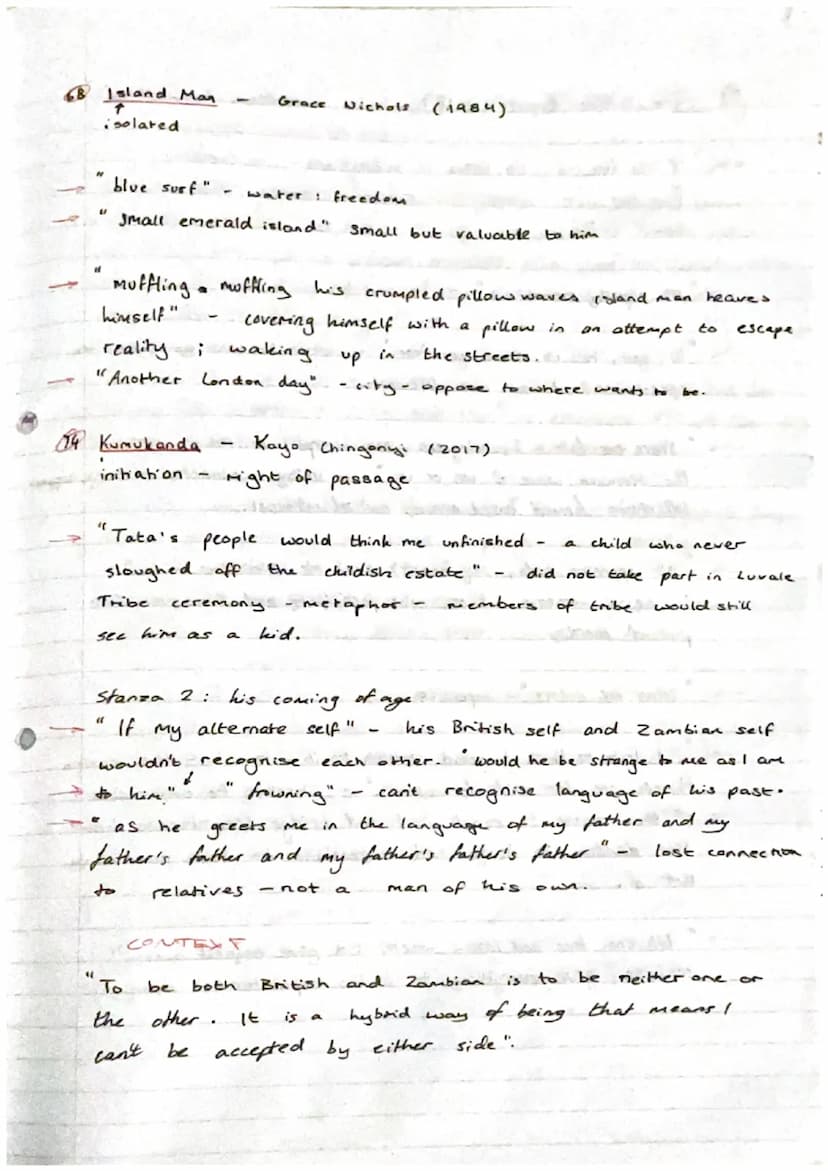 68 Island Man - Grace Nichols (1984)
↑
isolated
→ "blue surf" - water : freedom
→ "small emerald island" small but valuable to him
→ "Muffling muffling his crumpled pillow waves island man heaves
himself" - covering himself with a pillow in an attempt to escape
reality ; waking up in the streets.
→ "Another London day" - city - oppose to where wants to be.
74 Kumukanda - Kayo Chingonyi (2017)
initiation - right of passage
→ "Tata's people would think me unfinished - a child who never
sloughed off the childish estate" - did not take part in Luvale
Tribe ceremony - metaphor - members of tribe would still
see him as a kid.
Stanza 2 : his coming of age
→ "If my alternate self" - his British self and Zambian self
wouldn't recognise each other. "would he be strange to me as I am
→ to him" "frowning" - can't recognise language of his past.
→ "as he greets me in the language of my father and my
father's father and my father's father's father" - lost connection
to relatives - not a man of his own.
CONTEXT
"To be both British and Zambian is to be neither one or
the other. It is a hybrid way of being that means I
can't be accepted by either side".